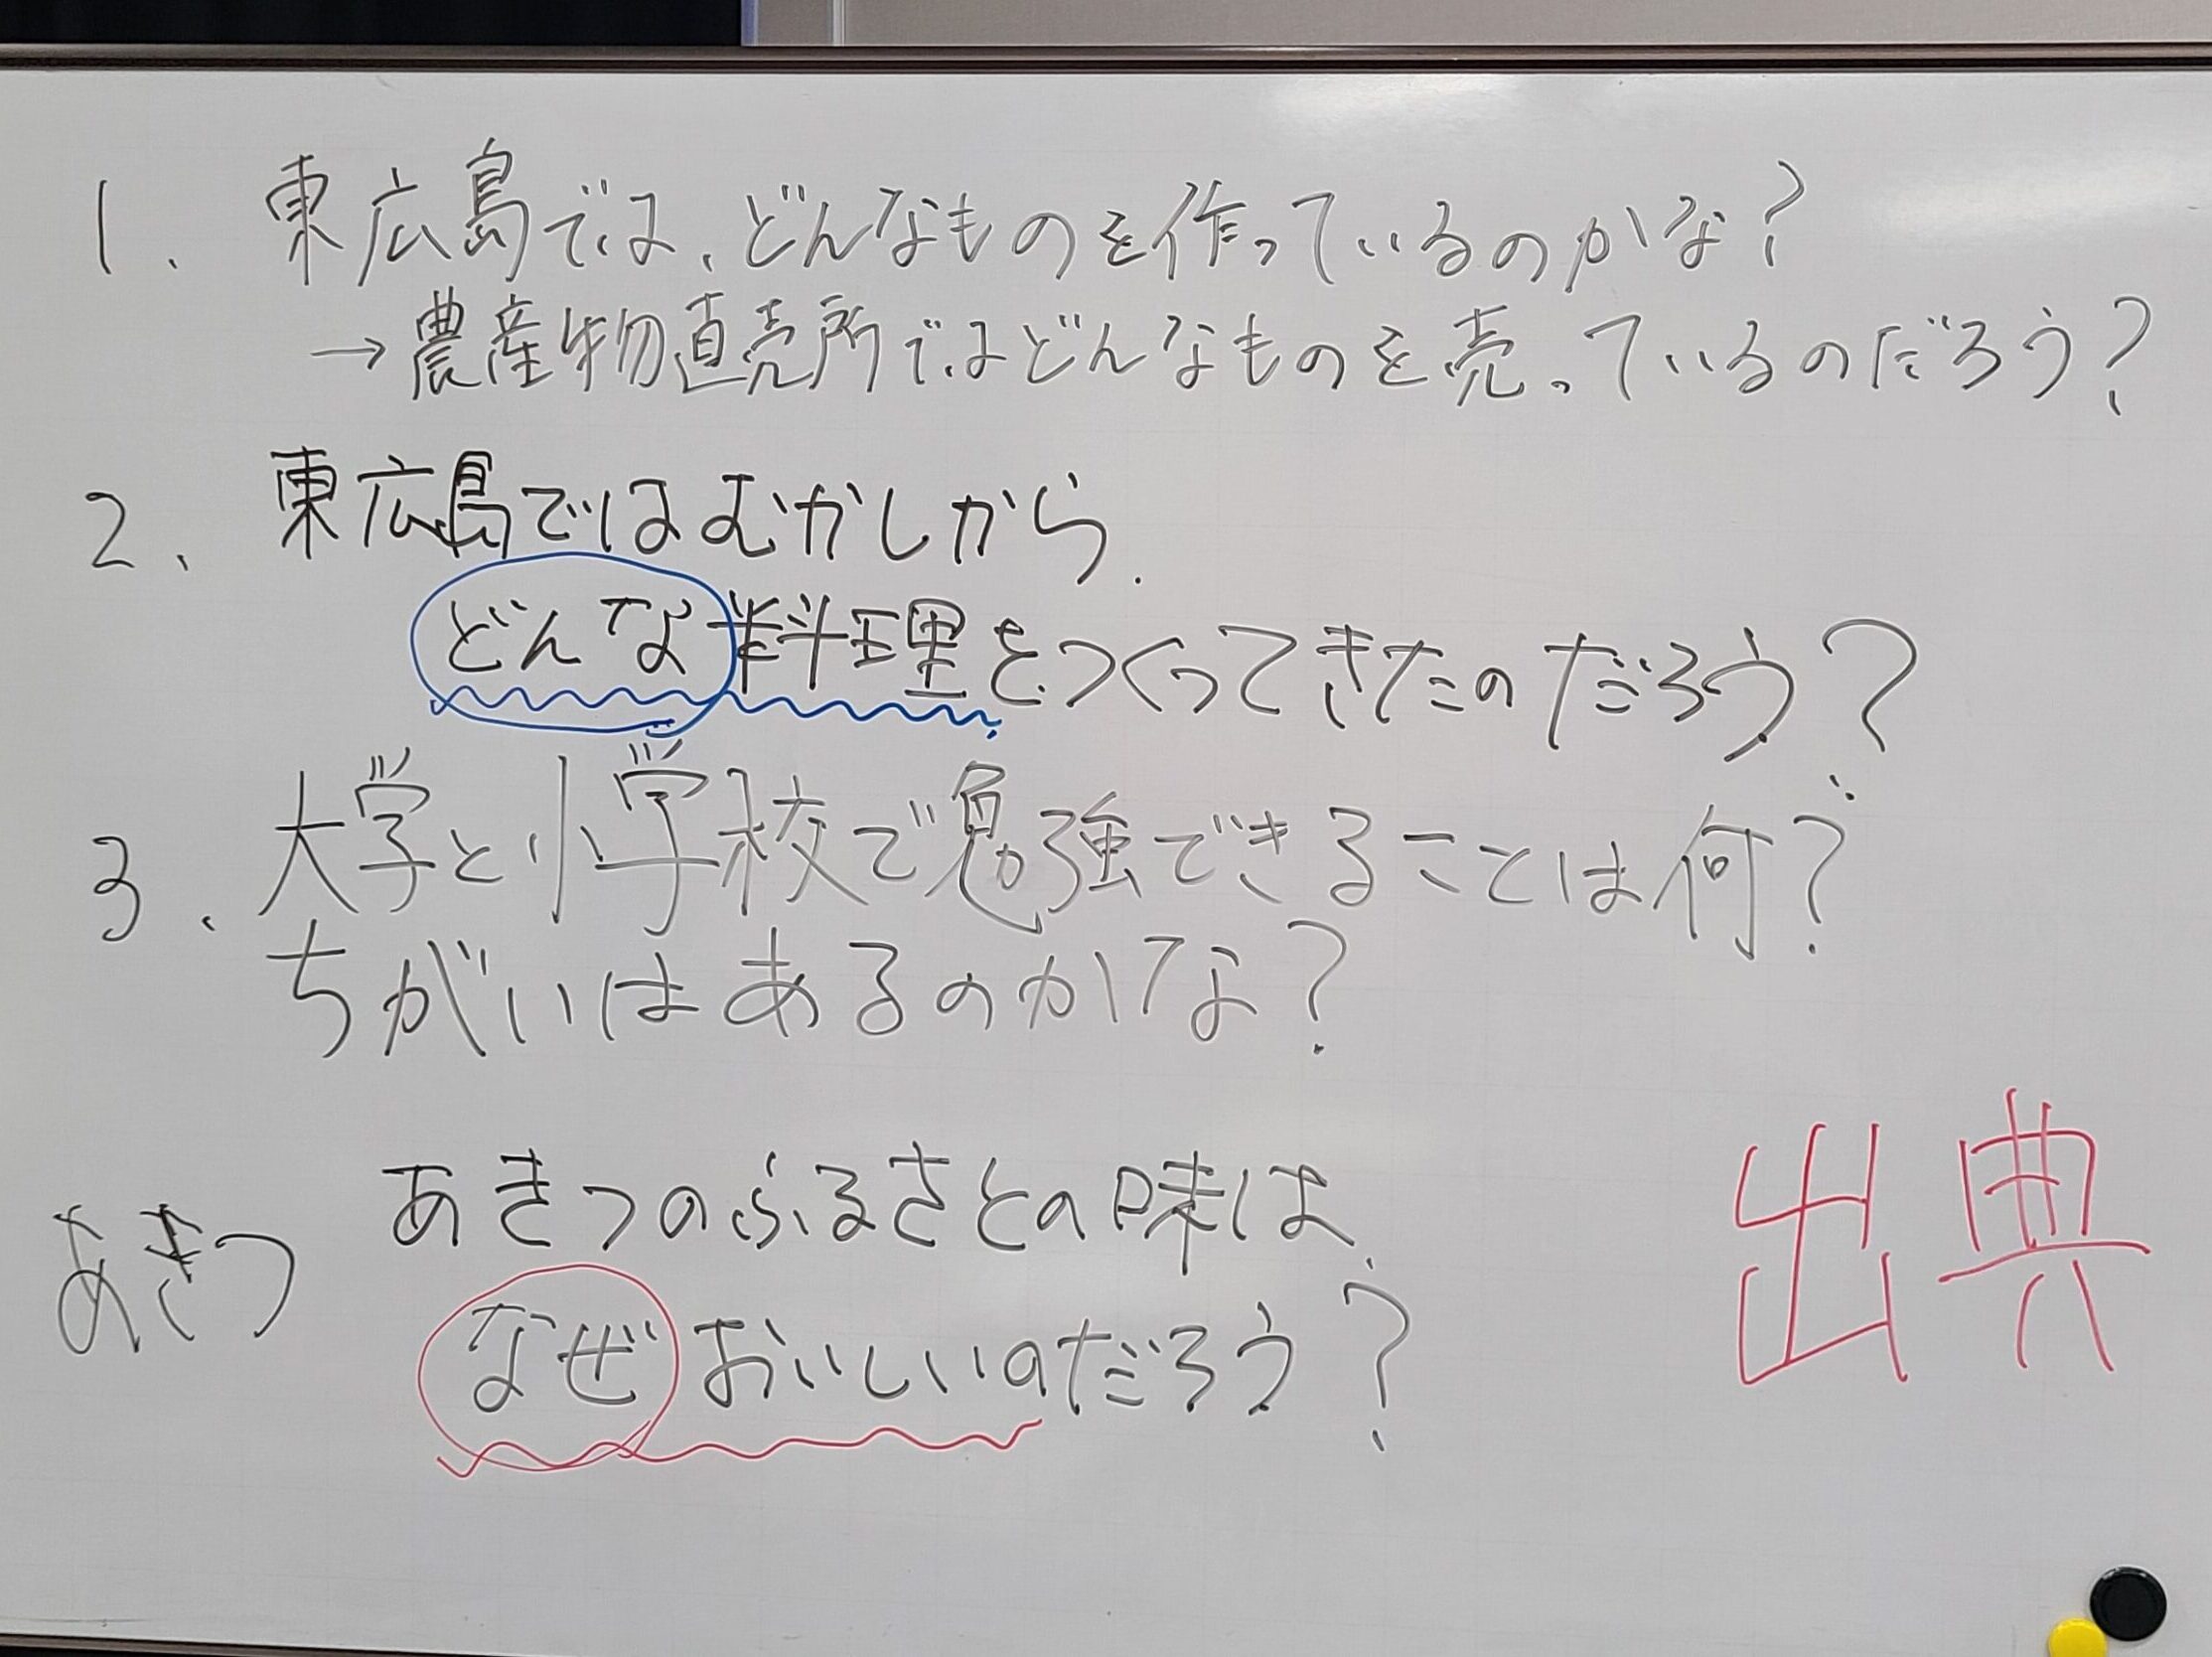 1. 東広島では、どんなものを作っているのかな?
→農産物直売所ではどんなものを売っているのだろう?
2、東広島ではむかしから、
どんな料理をつくってきたのだろう?
3、大学と小学校で勉強できることは何?
ちがいはあるのかな?
あきつのふるさとの味は、
あきつ
なぜおいしいのだろう?
出典